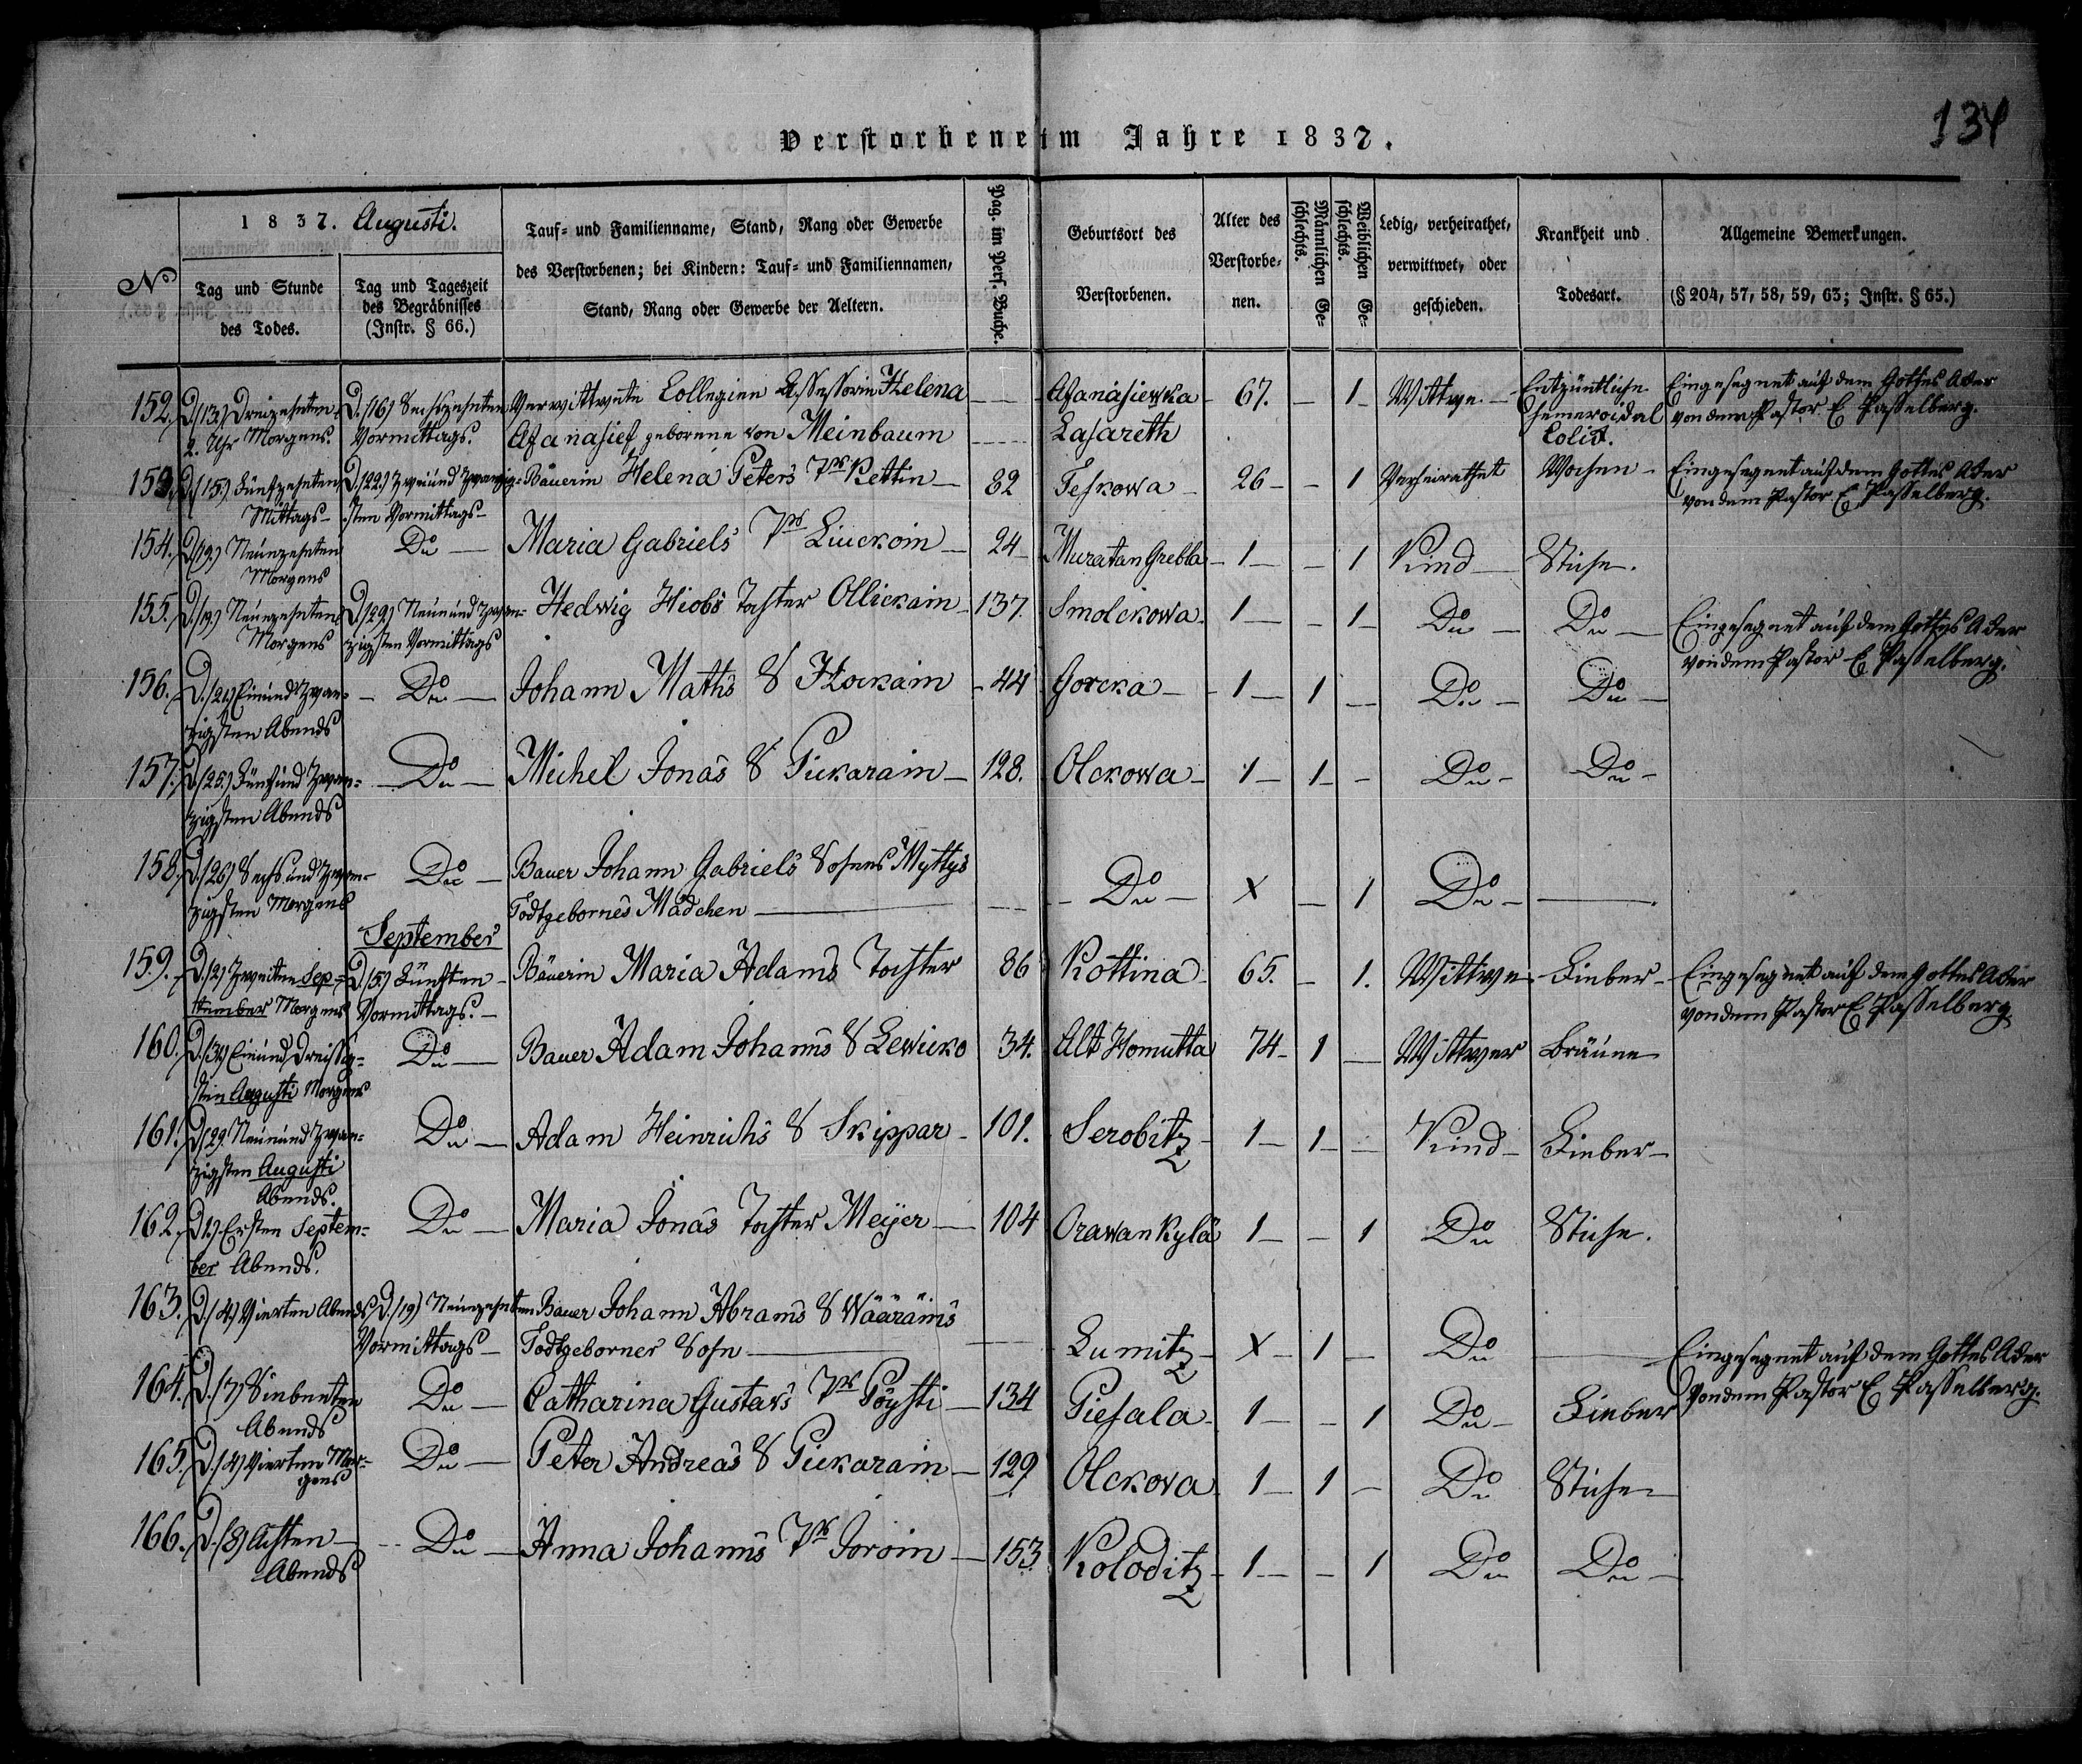 134
Verstorbene im Jahre 1837.
№
1837. Augusti.
Tag und Stunde des Todes.
Tag und Tageszeit des Begräbnisses (Instr. § 66.)
Tauf- und Familienname, Stand, Rang oder Gewerbe
des Verstorbenen; bei Kindern: Tauf- und Familiennamen,
Stand, Rang oder Gewerbe der Aeltern.
Pag. im Pers. Buche.
Geburtsort des Verstorbenen.
Alter des Verstorbe- nen.
Männlichen Ge- schlechts.
Weiblichen Ge- schlechts.
Ledig, verheirathet, verwittwet, oder geschieden.
Krankheit und Todesart.
Allgemeine Bemerkungen.
(§ 204, 57, 58, 59, 63; Instr. § 65.)
152. D. (13.) Dreizehnten D. (16) Sechszehnten Verwittwete Collegien Assessorin Helena — Afanasiewka 67. — 1 Wittwe Entzüntliche Eingesegnet auf dem Gottes Acker
2. Uhr Morgens. Vormittags. Afanasief geborene von Meinbaum Lasareth hemeroidal von dem Pastor E Passelberg.
Colick.
153. D. (15.) Fünfzehnten D. (22.) Zweiund zwanzig- Bäuerin Helena Peters Tr Kettin — 82 Teskowa 26 — 1 Verheirathet Eingesegnet auf dem Gottes Acker
Mittags sten Vormittags von dem Pastor E Passelberg.
154. D. (19.) Neunzehnten Do Maria Gabriels Tr Liuckoin — 24 Muratan Grebla 1 — 1 Kind
Morgens
155. D. (19.) Neunzehnten D. (29) Neunund zwan- Hedwig Hiobs Tochter Ollickain 137. Smolckowa 1 — 1 Do Do Eingesegnet auf dem Gottes Acker
Morgens zigsten Vormittags von dem Pastor E Passelberg.
156. D. (21) Einund zwan- Do Johann Maths S Hockain 44 Gorcka 1 1 — Do Do
zigsten Abends
157. D. (25.) Fünfund zwan- Do Michel Jonas S Pickarain 128. Olckowa 1 1 — Do Do
zigsten Abends
158. D. (26) Sechs und zwan- Do Bauer Johann Gabriels Sohnes Myttys Do X — 1 Do —
zigsten Morgens Todtgebornes Mädchen
September
159. D. (2) Zweiten Sep- D. (5.) Fünften Bäuerin Maria Adams Tochter 86 Kottina 65. — 1. Wittwe Fieber Eingesegnet auf dem Gottes Acker
tember Morgens Vormittags. von dem Pastor E Passelberg
160. D. (31) Einund Dreissig- Do Bauer Adam Johanns S Lewicko 34. Alt Homutta 74 1 — Wittwer Bräune
sten Augusti Morgens
161. D. (29. Neunund zwan- Do Adam Heinrichs S Skippar 101. Serobitz 1 1 — Kind Fieber
zigsten Augusti
Abends.
162. D 1.) Ersten Septem- Do Maria Jonas Tochter Meijer 104 Orawan Kylä 1 — 1 Do
ber Abends.
163. D. (4.) Vierten Abends D. (19) Neunzehnten Bauer Johann Abrams S Wääräins
Vormittags Todtgeborner Sohn Lumitz X 1 — Do — Eingesegnet auf dem Gottes Acker
164. D. (7) Siebenten Do Catharina Gustavs Tr Pöysti 134 Piesala 1 — 1 Do Fieber von dem Pastor E Passelberg.
Abends
165. D. (4) Vierten Mor- Do Peter Andreas S Pickarain 129 Olckova 1 1 — Do
gens
166. D. (8) Achten Do Anna Johanns Tr Joroin 153 Koloditz 1 — 1 Do Do
Abends